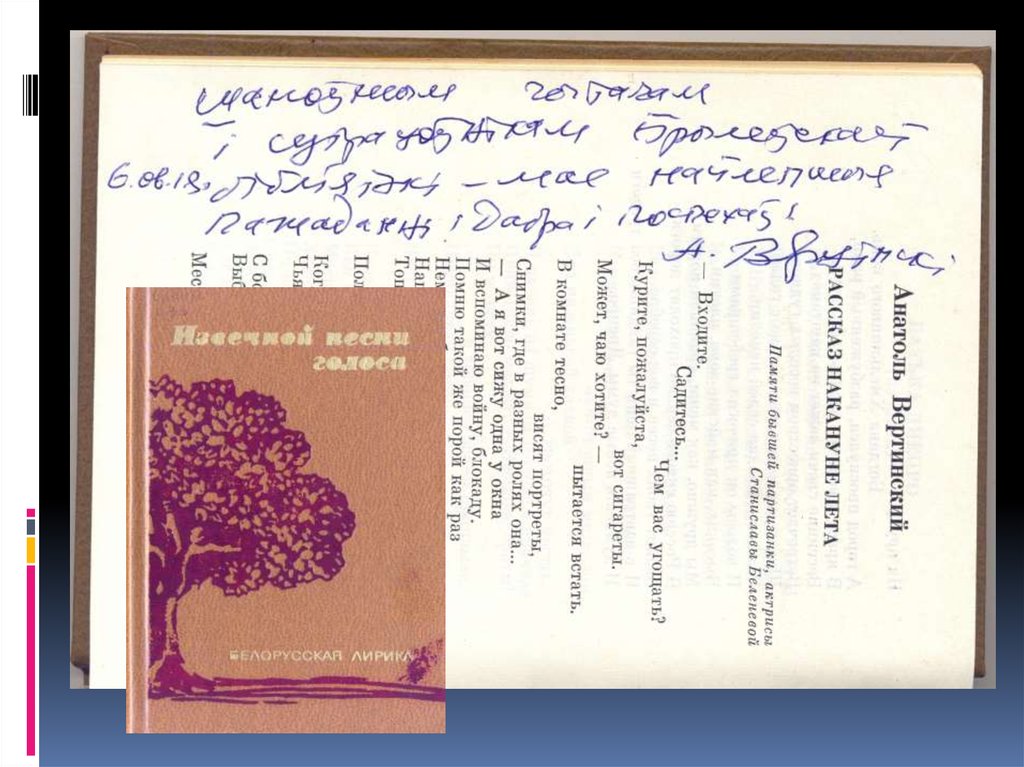 Шаноўным чытачам
і супрацоўнікам
бібліятэкі – мае найлепшыя
пажаданні і Дабра і поспехаў!
А. Вярцінскі
Анатоль Вертинский
РАССКАЗ НАКАНУНЕ ЛЕТА
Памяти бывшей партизанки, актрисы
Станиславы Беленевой
— Входите.
Садитесь... Чем вас угощать?
Курите, пожалуйста,
вот сигареты.
Может, чаю хотите? —
пытается встать.
В комнате тесно,
висят портреты,
Снимки, где в разных ролях она...
— А я вот сижу одна у окна
И вспоминаю войну, блокаду.
Помню такой же порой как раз
Извечной песни
голоса
БЕЛОРУССКАЯ ЛИРИКА